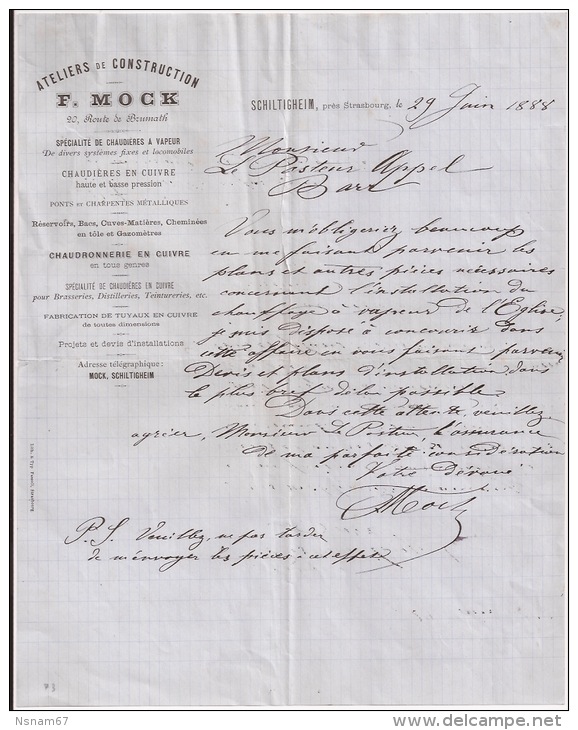 ATELIERS DE CONSTRUCTION
F. MOCK
20, Route de Brumath
SPÉCIALITÉ DE CHAUDIÈRES A VAPEUR
De divers systèmes fixes et locomobiles
CHAUDIÈRES EN CUIVRE
haute et basse pression
PONTS et CHARPENTES MÉTALLIQUES
Réservoirs, Bacs, Cuves-Matières, Cheminées
en tôle et Gazomètres
CHAUDRONNERIE EN CUIVRE
en tous genres
SPÉCIALITÉ DE CHAUDIÈRES EN CUIVRE
pour Brasseries, Distilleries, Teintureries, etc.
FABRICATION DE TUYAUX EN CUIVRE
de toutes dimensions
Projets et devis d'installations
Adresse télégraphique:
MOCK, SCHILTIGHEIM
SCHILTIGHEIM, près Strasbourg, le 29 Juin 1888
Monsieur
Le Pasteur Appel
Barr
Vous m'obligeriez beaucoup
en me faisant parvenir les
plans et autres pièces nécessaires
concernant l'installation du
chauffage à vapeur de l'Eglise,
je suis disposé à concourir dans
cette affaire en vous faisant parvenir
Devis et plans d'installation dans
le plus bref délai possible.
Dans cette attente, veuillez
agréer, Monsieur le Pasteur, l'assurance
de ma parfaite considération
Votre dévoué
F Mock
P.S. Veuillez, ne pas tarder
de m'envoyer les pièces à cet effet
93
Nsnam67
delcampe.net